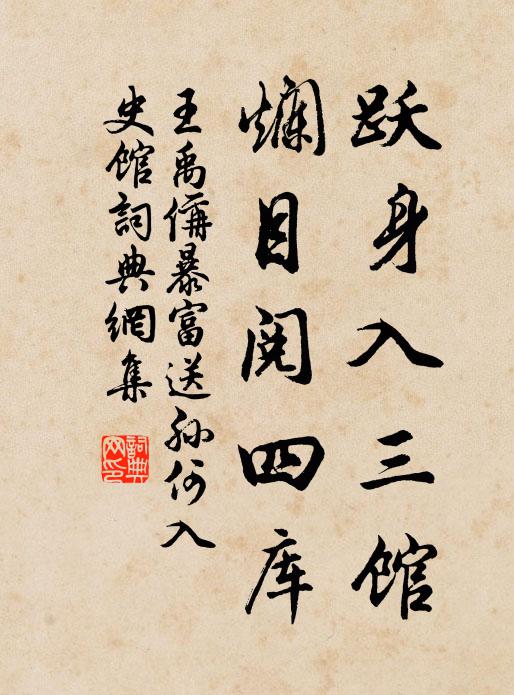 跃身入三馆
烂目阅四库
王禹偁暴富送孙何入
史馆詞典網集
詞典网印